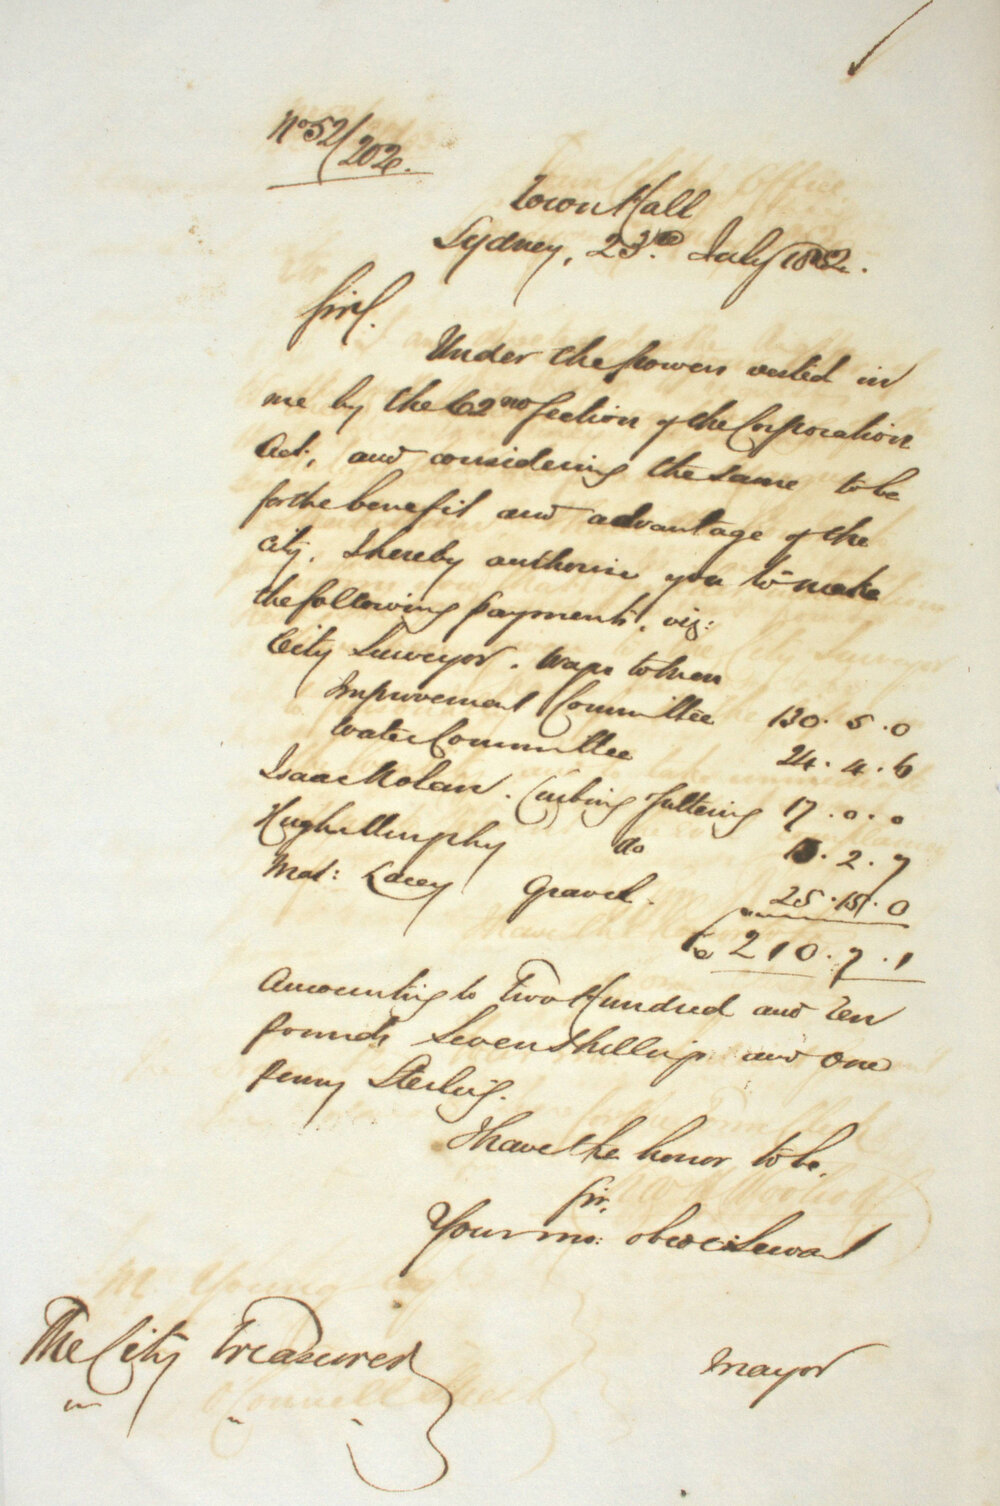 No 52/202.
Town Hall
Sydney, 23rd July 1852.
Sir,
Under the powers vested in
me by the 62nd Section of the Corporation
Act, and considering the same to be
for the benefit and advantage of the
City, I hereby authorise you to make
the following payments, viz:
City Surveyor. Wages to Men
Improvement Committee 130. 5. 0
Water Committee 24. 4. 6
Isaac Nolan. Curbing Guttering 17. 0. 0
Hugh Murphy do 13. 2. 7
Mat: Lacey Gravel. 25. 15. 0
£ 210. 7. 1
Amounting to Two Hundred and Ten
pounds Seven Shillings and One
penny Sterling.
I have the honor to be,
Sir,
Your mo: obed Servant
Mayor
The City Treasurer